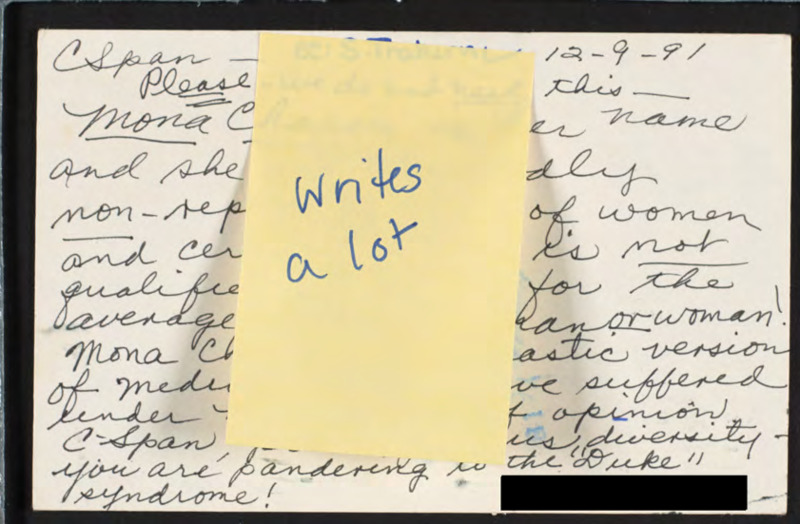 CSpan — 12-9-91
Please this —
Mona C er name
and she dly
non-rep of women
and cer is not
qualifie for the
average an or woman!
Mona Ch astic version
of medi ve suffered
under opinion
C-Span, us "diversity" -
you are pandering to the "Duke"
syndrome!
Writes
a lot